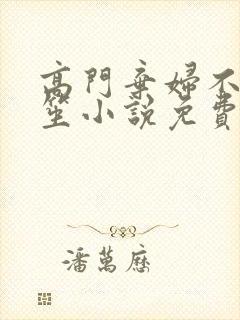 高門棄婦不
笙小說免費
潘萬歷